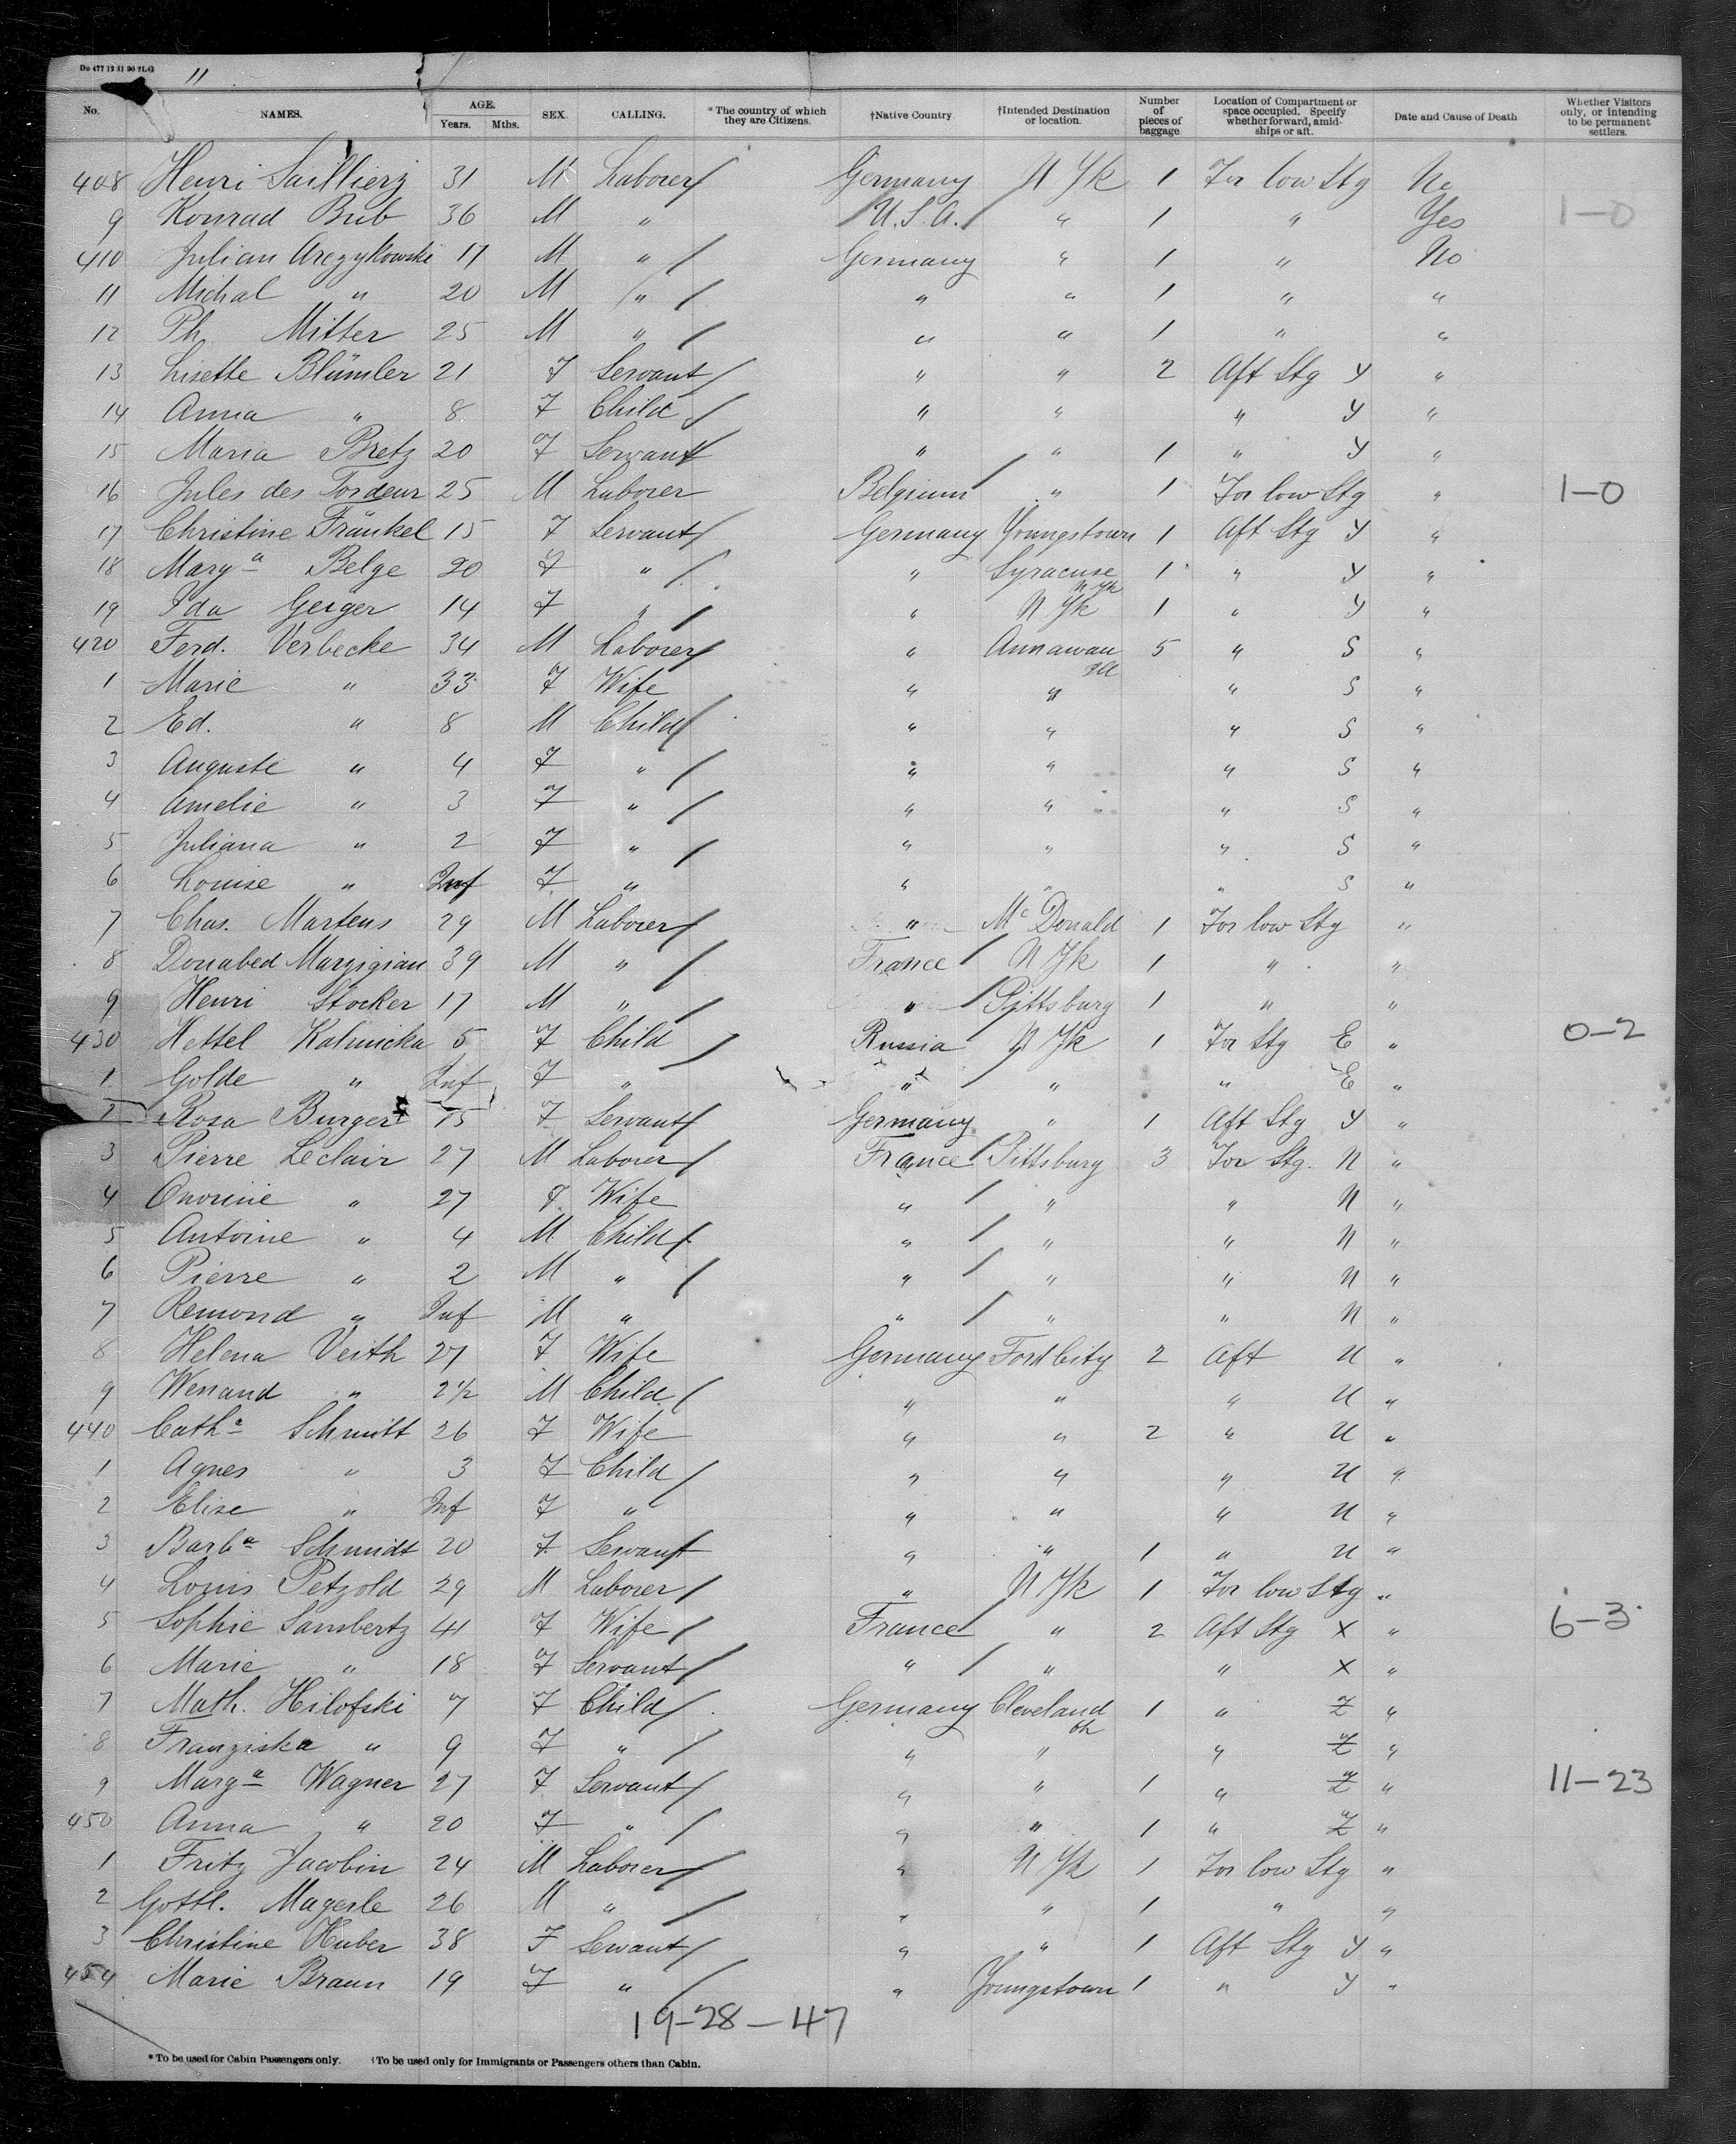 Do 477 12 31 90 2LG
11
No. NAMES. AGE. Years. Mths. SEX. CALLING. *The country of which they are Citizens. †Native Country †Intended Destination or location. Number of pieces of baggage Location of Compartment or space occupied. Specify whether forward, amidships or aft. Date and Cause of Death Whether Visitors only, or intending to be permanent settlers.
408 Henri 31 M Laborer / Germany N Yk 1 For low Stg No
9 Konrad Bub 36 M " / U.S.A. / " 1 " Yes 1-0
410 Julian Arczykowski 17 M " / Germany " 1 " No
11 Michal " 20 M " / " " 1 " "
12 Ph. Mitter 25 M " / " " 1 " "
13 Lisette Blümler 21 F Servant / " " 2 Aft Stg Y "
14 Anna " 8 F Child / " " " Y "
15 Maria Bretz 20 F Servant " " 1 " Y "
16 Jules des Tordeur 25 M Laborer Belgium / " 1 For low Stg " 1-0
17 Christine Fränkel 15 F Servant / Germany Youngstown 1 Aft Stg Y "
18 Marga Belge 20 F " / " Syracuse N Yk 1 " Y "
19 Ida Geiger 14 F " / " N Yk 1 " Y "
420 Ferd. Verbecke 34 M Laborer / " Annawan Ill 5 " S "
1 Marie " 33 F Wife " " " S "
2 Ed. " 8 M Child / " " " S "
3 Auguste " 4 F " / " " " S "
4 Amelie " 3 F " / " " " S "
5 Juliana " 2 F " / " " " S "
6 Louise " Inf F " " " " S "
7 Chas. Martens 29 M Laborer / " Mc Donald 1 For low Stg "
8 Donabed Margigian 39 M " / France / N Yk 1 " "
9 Henri Stocker 17 M " / " / Pittsburg 1 " "
430 Hettel Kalinicka 5 F Child / Russia N Yk 1 For Stg E " 0-2
1 Golde " Inf F " " / " " E "
2 Rosa Burger 15 F Servant / Germany " 1 Aft Stg Y "
3 Pierre Leclair 27 M Laborer / France / Pittsburg 3 For Stg. N "
4 Onorine " 27 F Wife " / " " N "
5 Antoine " 4 M Child / " / " " N "
6 Pierre " 2 M " / " / " " N "
7 Remond " Inf M " " / " " N "
8 Helena Veith 27 F Wife Germany Ford City 2 Aft U "
9 Wenand " 2½ M Child / " " " U "
440 Catha Schmitt 26 F Wife " " 2 " U "
1 Agnes " 3 F Child / " " " U "
2 Elise " Inf F " " " " U "
3 Barba Schmidt 20 F Servant " " 1 " U "
4 Louis Petzold 29 M Laborer / " N Yk 1 For low Stg "
5 Sophie Lambertz 41 F Wife / France / " 2 Aft Stg X " 6-3
6 Marie " 18 F Servant / " / " " X "
7 Math. Hilofski 7 F Child / Germany Cleveland Oh 1 " Z "
8 Franziska " 9 F " / " " " Z "
9 Marga Wagner 27 F Servant / " " 1 " Z " 11-23
450 Anna " 20 F " / " " 1 " Z "
1 Fritz Jacobin 24 M Laborer / " N Yk 1 For low Stg "
2 Gottl. Magerle 26 M " / " " 1 " "
3 Christine Huber 38 F Servant / " " 1 Aft Stg Y "
454 Marie Braun 19 F " / " Youngstown 1 " Y "
19-28-47
*To be used for Cabin Passengers only. †To be used only for Immigrants or Passengers others than Cabin.